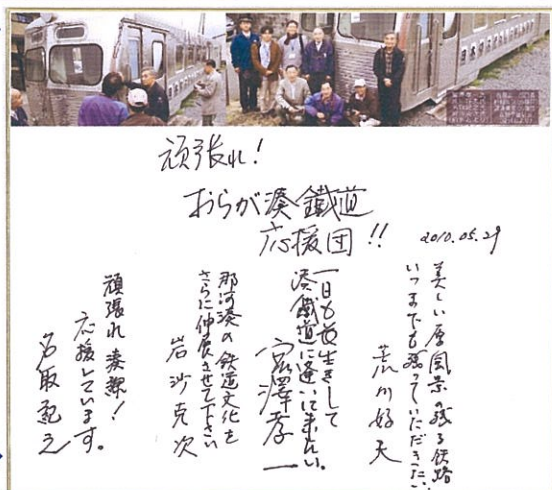 頑張れ!
おらが湊鐵道
応援団!!
2010.05.29
美しい原風景の残る鉄路
いつまでも残っていただきたい
荒川好夫
一日も長生きして
湊鐵道に逢いに来たい。
宮澤孝一
那珂湊の鉄道文化を
さらに伸展させて下さい
岩沙克次
頑張れ湊線!
応援しています。
名取紀之